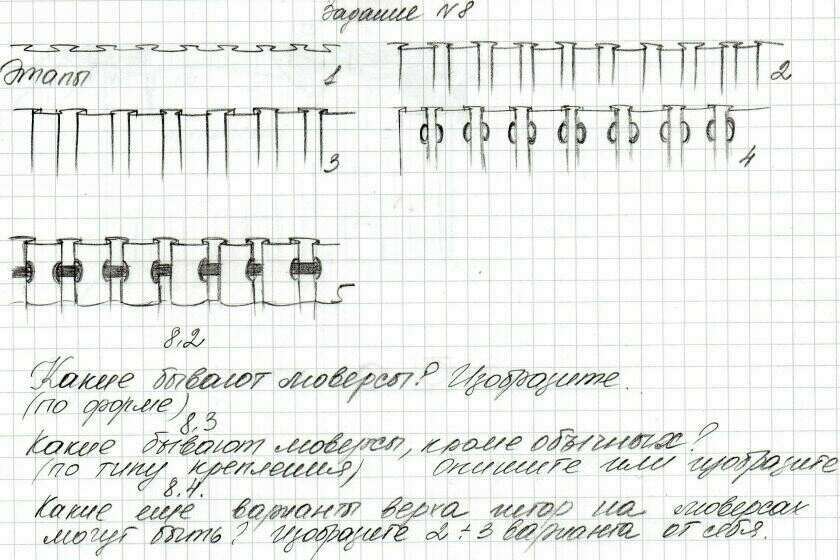 Задание №8
Этапы
1
2
3
4
5
8.2
Какие бывают люверсы? Изобразите.
(по форме)
8.3
Какие бывают люверсы, кроме обычных?
(по типу крепления) опишите или изобразите
8.4.
Какие ещё варианты верха штор на люверсах
могут быть? Изобразите 2÷3 варианта от себя.